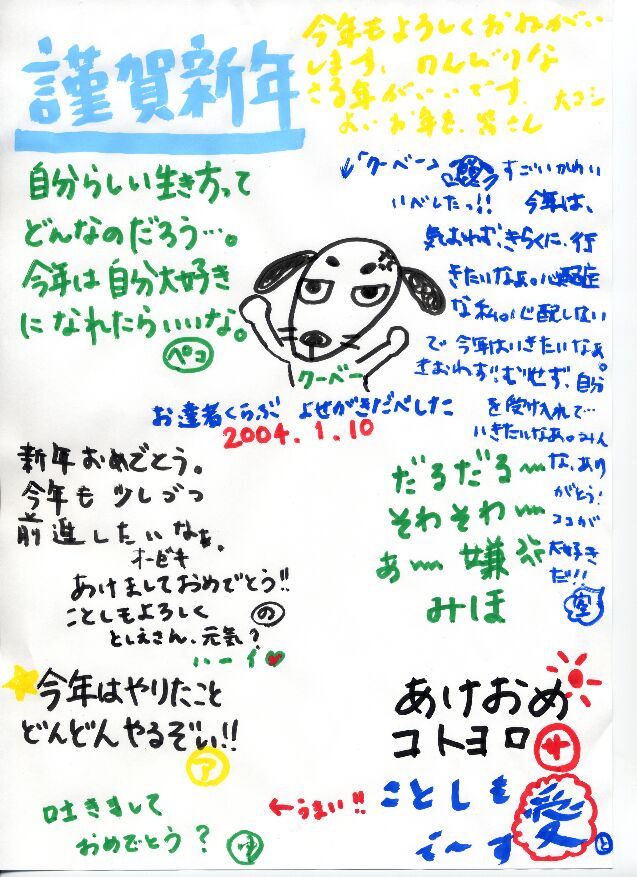 謹賀新年
今年もよろしくおねがい
します。 のんびりな
さる年がいいです。 大コシ
よいお年を、皆さん
自分らしい生き方って
どんなのだろう…。
今年は自分大好き
になれたらいいな。
ペコ
↓「クーベー」 すごいかわい
いべしたっ!! 今年は、
気おわず、きらくに、行
きたいなぁ。心配症
な私。心配しない
で今年はいきたいなぁ。
きおわず、むせず、自分
を受け入れて…
いきたいなあ。みん
な、あり
がとう!
ココが
大好き
だ!!
空
クーベー
お達者くらぶ よせがきだべした
2004.1.10
新年おめでとう。
今年も少しづつ
前進したいなぁ。
オービキ
あけましておめでとう!!
ことしもよろしく の
としえさん、元気?
ハーイ♥
だるだる〜
そわそわ〜
あ〜嫌
みほ
今年はやりたこと
どんどんやるぞい!!
ア
あけおめ
コトヨロ サ
吐きまして
おめでとう? ゆ
←うまい!!
ことしも
で〜す
愛
と